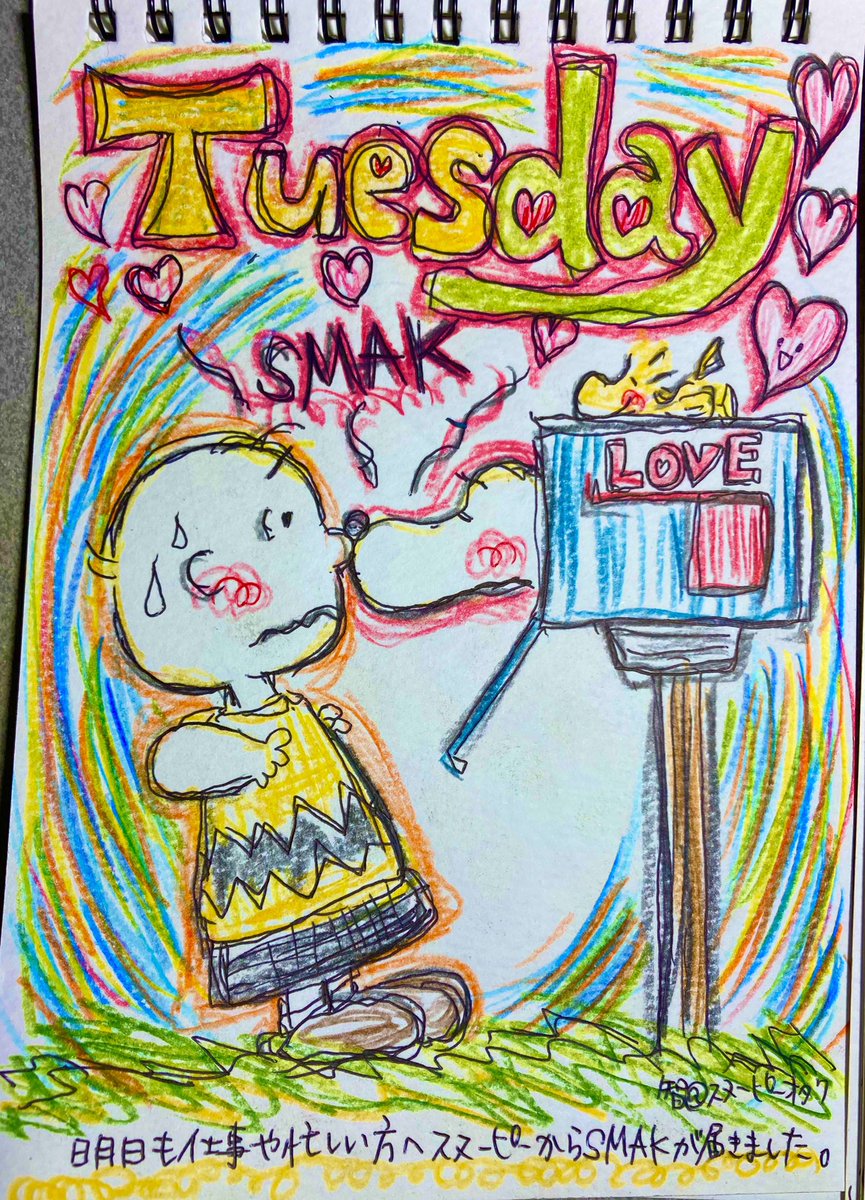 Tuesday
SMAK
LOVE
智@スヌーピーオタク
明日も仕事や忙しい方へスヌーピーからSMAKが届きました。